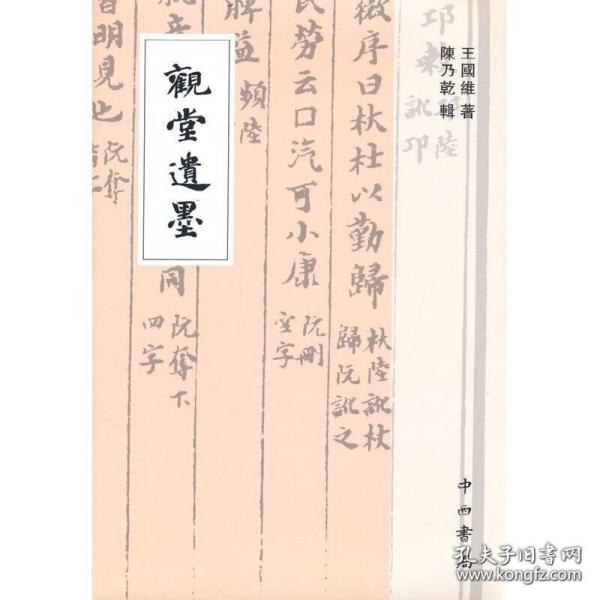 觀堂遺墨
王國維 著
陳乃乾 輯
邛
陸
訛卭
微序曰杕杜以勤歸
杕陸訛杖
歸阮訛之
民勞云口汽可小康
阮刪
空字
脾
頻陸
明見也
阮奪
同
阮奪下
四字
中西書局
孔夫子旧书网
www.kongfz.com